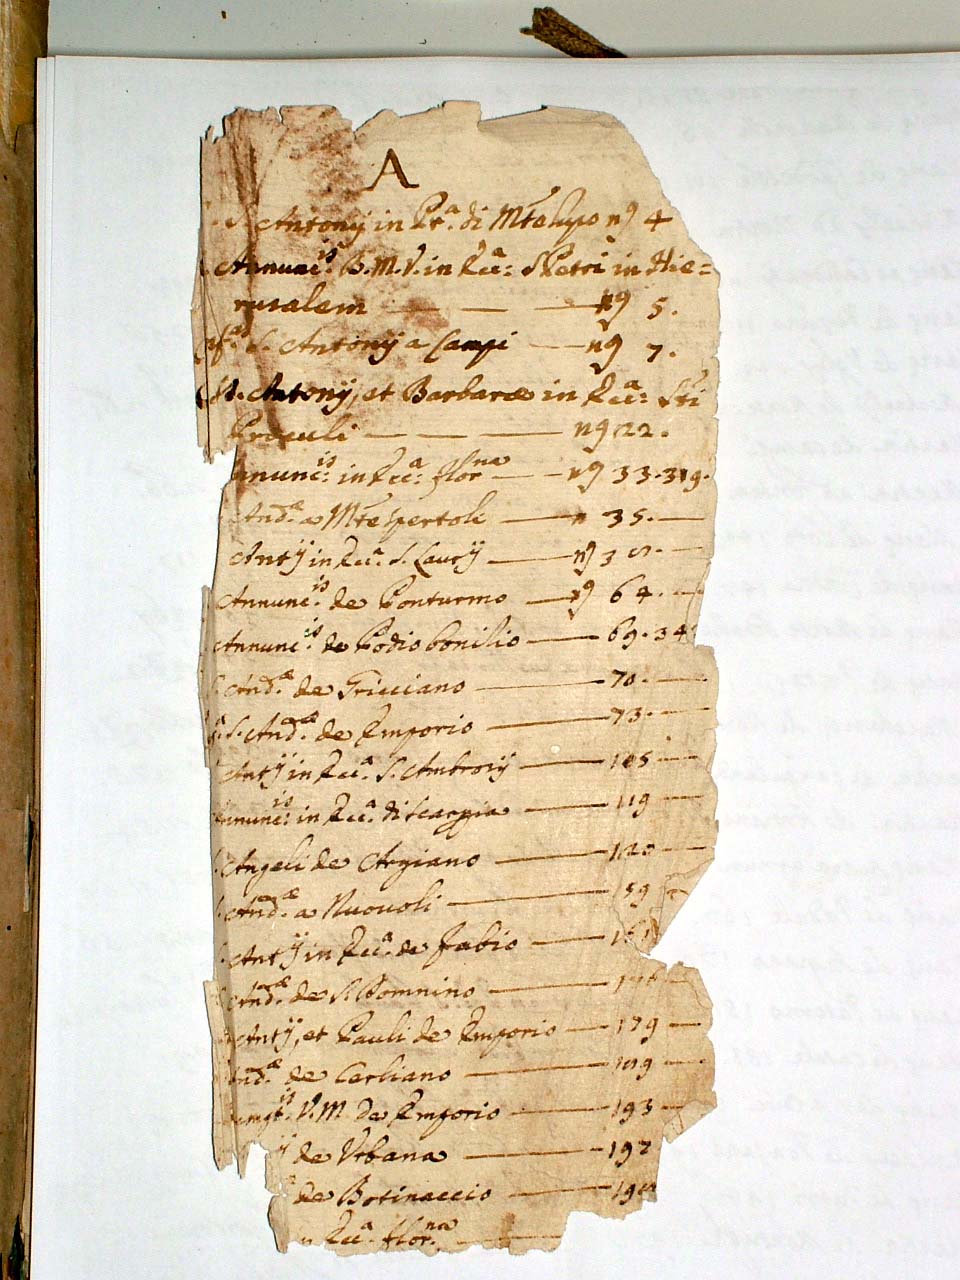 A
S. Antonij in Pta. di Mte lupo n9 4
Annunc.is B. M. V. in Ecca: S Petri in Hie=
rusalem n9 5.
S. Antonij a Campi n9 7.
S. Antonij, et Barbarae in Ecca: Sti
Proculi n9 22.
Annunc.is in Ecca: flor.na n9 33. 319.
And.ae a Mte Spertoli n 35.
Antij in Ecca. S. Laurij n9 3
Annunc.is de Ponturmo n9 64.
Annunc.is de Podio bonitio 69. 34
S. And.ae de Gricciano 70.
S. And.ae de Emporio 73.
Antij in Ecca. S. Ambrosij 105
Annunc.is in Ecca. di Scarpia 119
S. Angeli de Argiano 120
S. And.ae a Nuovoli 59
S. Antij in Ecca. de Fabio
And.ae de S. Domnino 176
Antij, et Pauli de Emporio 179
And.ae de Cerliano
V. M. de Emporio 193
de Urbana 197
de Botinaccio
Ecca. flor.na